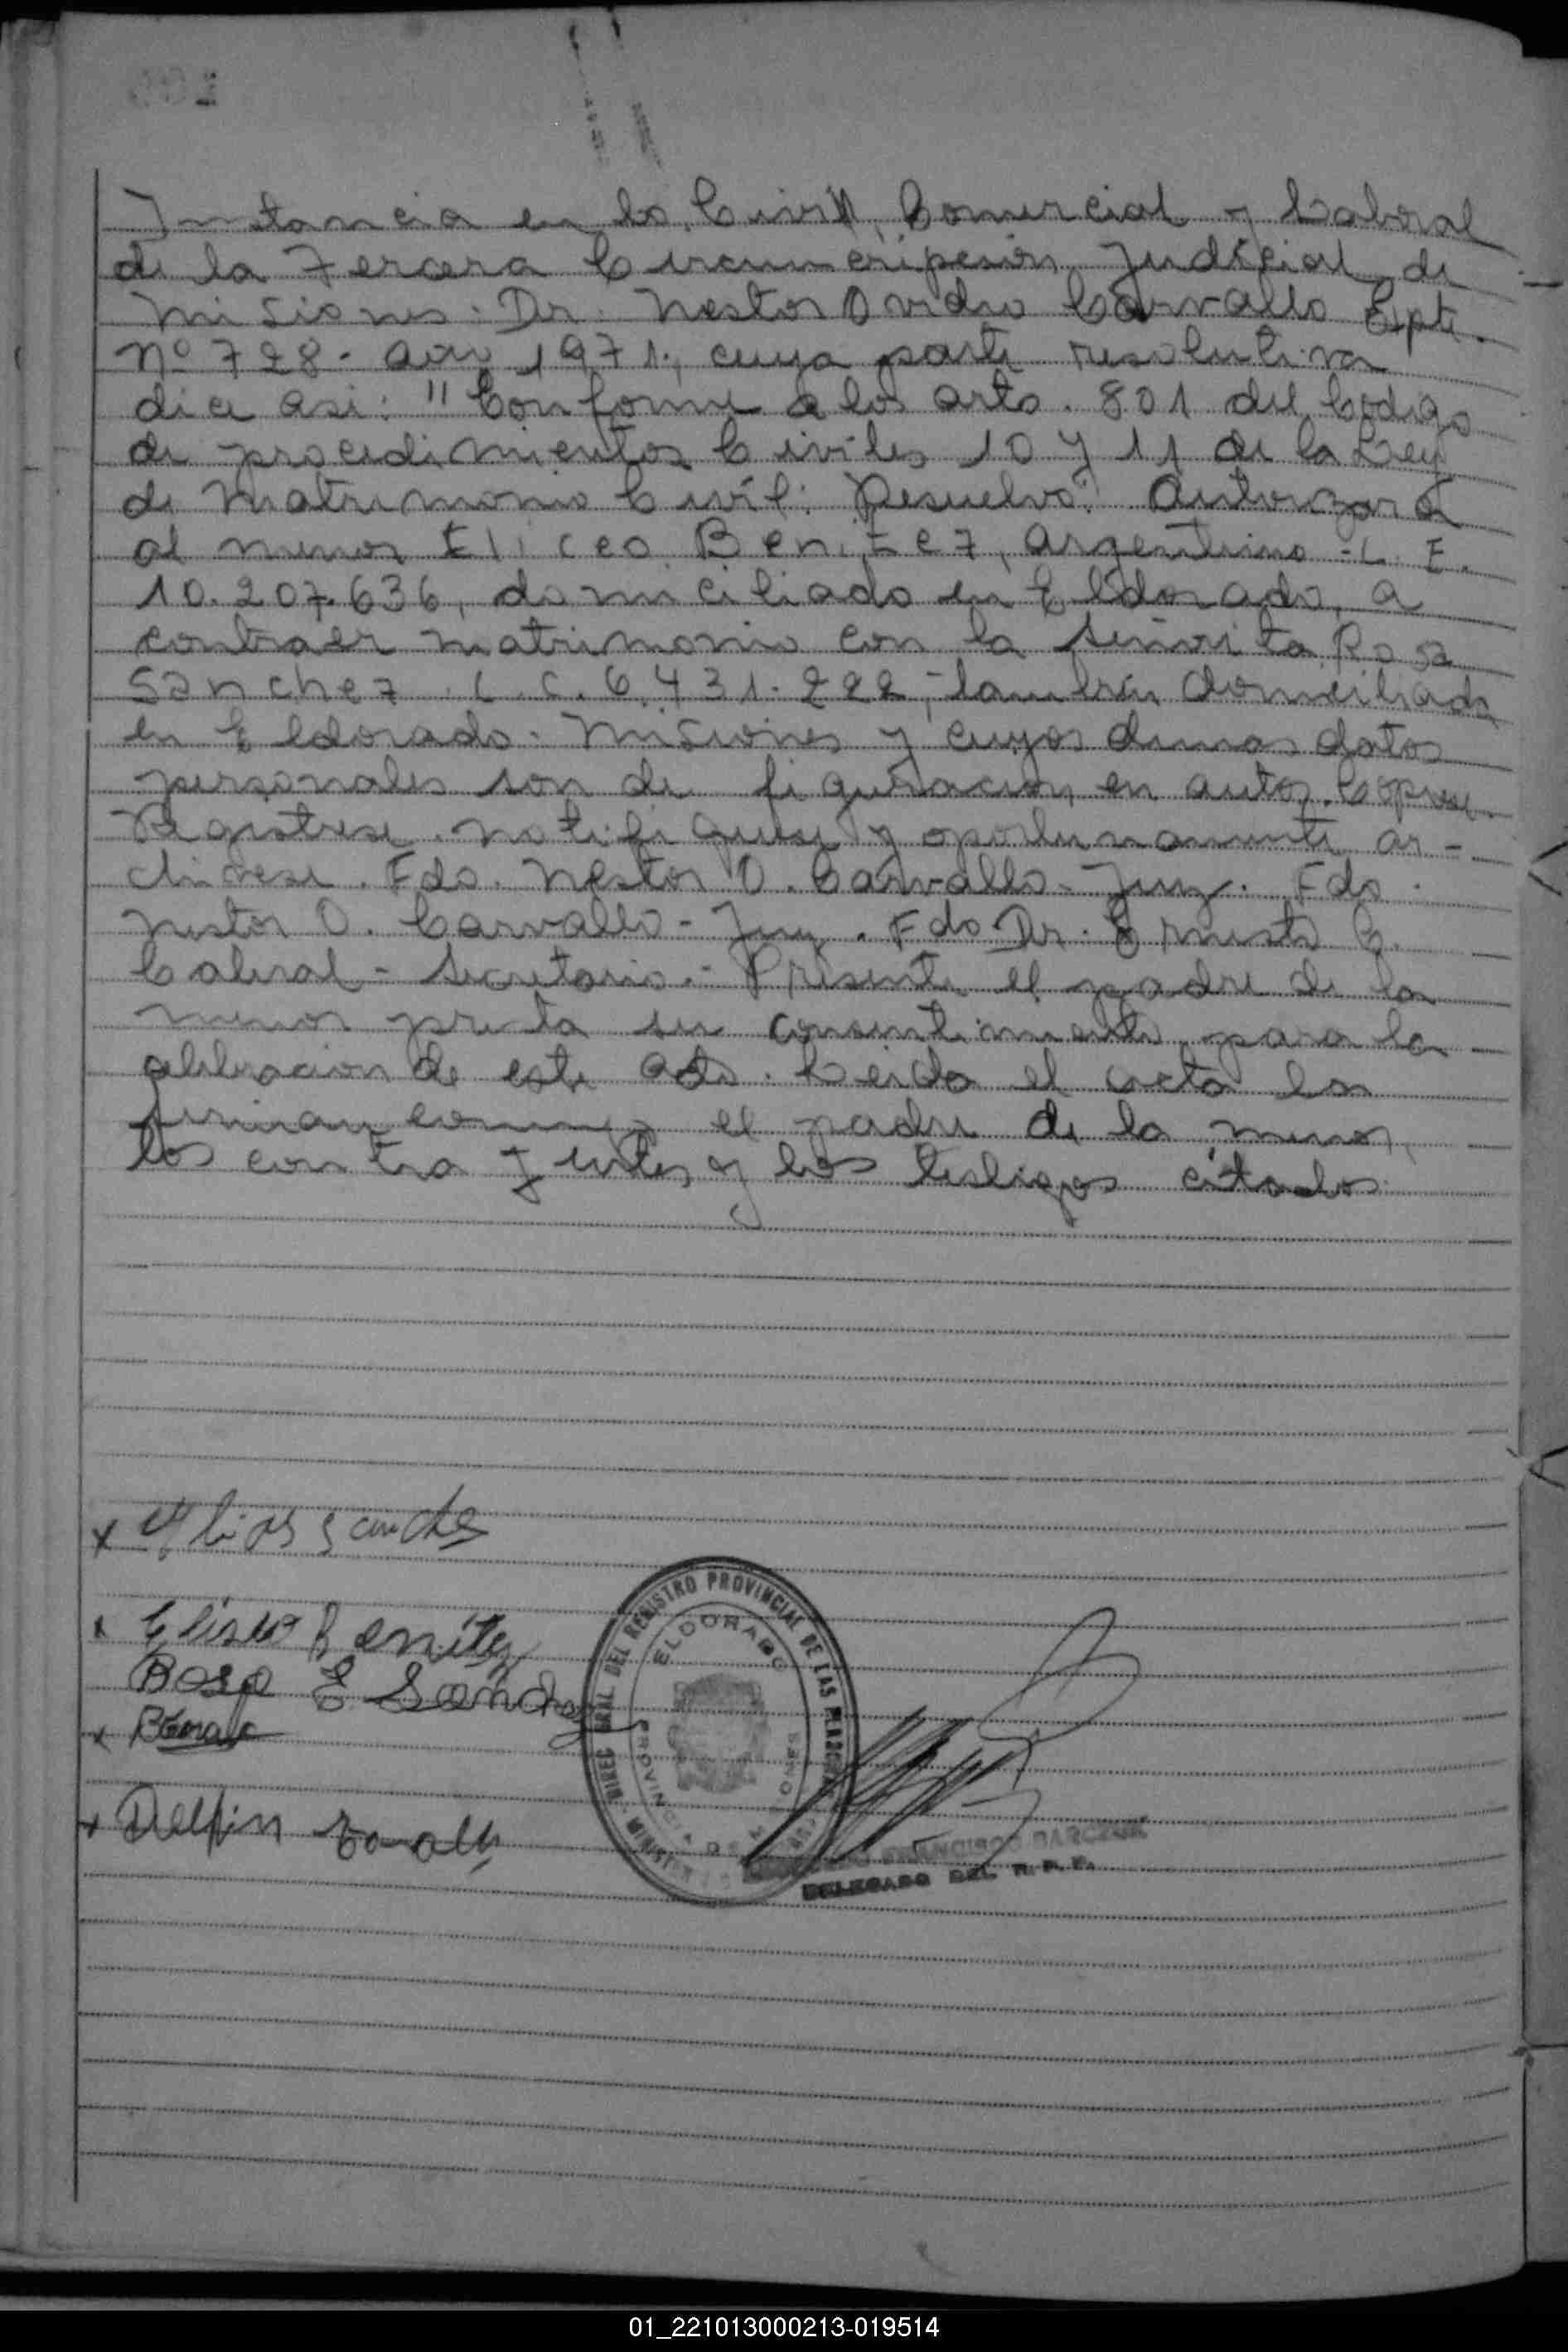 Instancia en lo Civil, Comercial y Laboral
de la Tercera Circunscripcion Judicial de
Misiones. Dr. Nestor Ovidio Carvallo Expte.
Nº 728. año 1971., cuya parte resolutiva
dice asi: "Conforme a los arts. 801 del Codigo
de procedimientos Civiles 10 y 11 de la Ley
de Matrimonio Civil: Resuelvo: Autorizar a
al menor Eliceo Benitez, argentino - L. E.
10.207.636, domiciliado en Eldorado, a
contraer matrimonio con la señorita Rosa
Sanchez. L. C. 6.431.222, tambien domiciliada
en Eldorado. Misiones y cuyos demas datos
personales son de figuracion en autos. Copiese
Registrese. notifiquese y oportunamente ar-
chivese. Fdo. Nestor O. Carvallo - Juez. Fdo.
Nestor O. Carvallo - Juez. Fdo Dr. Ernesto C.
Cabral - Secretario.- Presente el padre de la
menor presta su consentimiento para la
celebracion de este acto. Leida el acta la
firman conmigo el padre de la menor,
los contrayentes y los testigos citados
x Sanches
x Eliseo Benitez
Rosa E Sanchez
x
x Delfin
DIREC. GRAL. DEL REGISTRO PROVINCIAL DE LAS PERSONAS
ELDORADO
PROVINCIA DE MISIONES
FRANCISCO
DELEGADO DEL R. P. P.
01_221013000213-019514